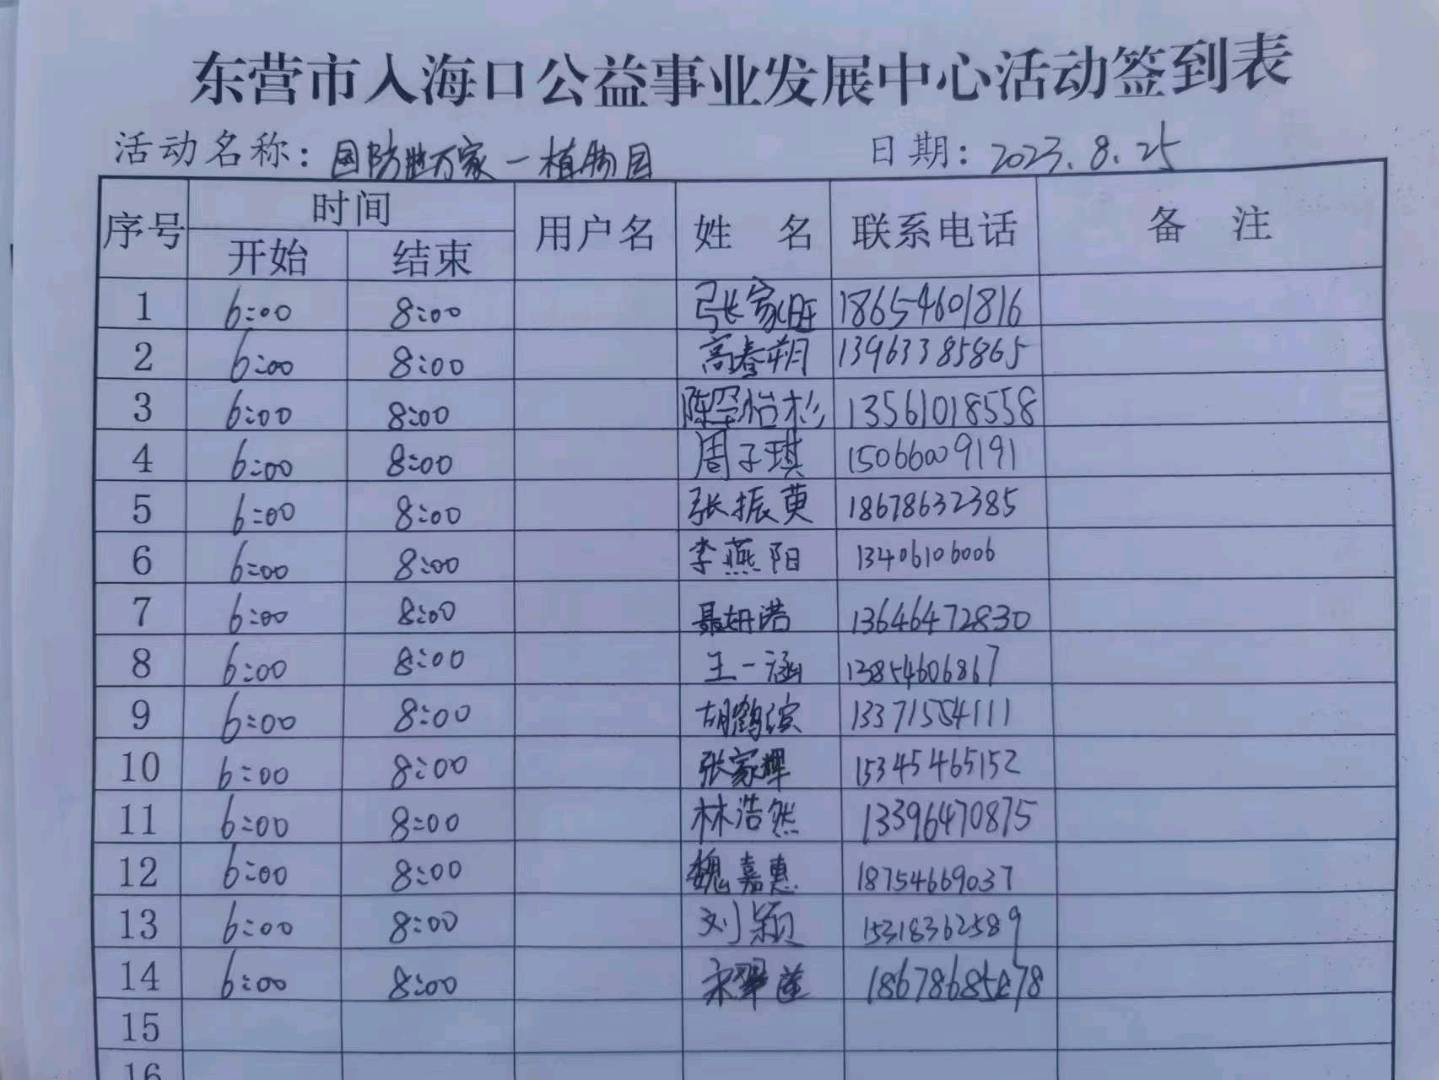 东营市入海口公益事业发展中心活动签到表
活动名称：国防进万家－植物园 日期：2023.8.25
序号 时间 用户名 姓 名 联系电话 备 注
开始 结束
1 6:00 8:00 张家旺 18654601816
2 6:00 8:00 高春朔 13963385865
3 6:00 8:00 陈罕怡杉 13561018558
4 6:00 8:00 周子琪 15066009191
5 6:00 8:00 张振黄 18678632385
6 6:00 8:00 李燕阳 13406106006
7 6:00 8:00 聂妍浩 13646472830
8 6:00 8:00 王一涵 13854606867
9 6:00 8:00 胡鹤滨 13371554111
10 6:00 8:00 张家辉 15345465152
11 6:00 8:00 林浩然 13396470875
12 6:00 8:00 魏嘉惠 18754669037
13 6:00 8:00 刘颖 15318362589
14 6:00 8:00 宋翠莲
15
16